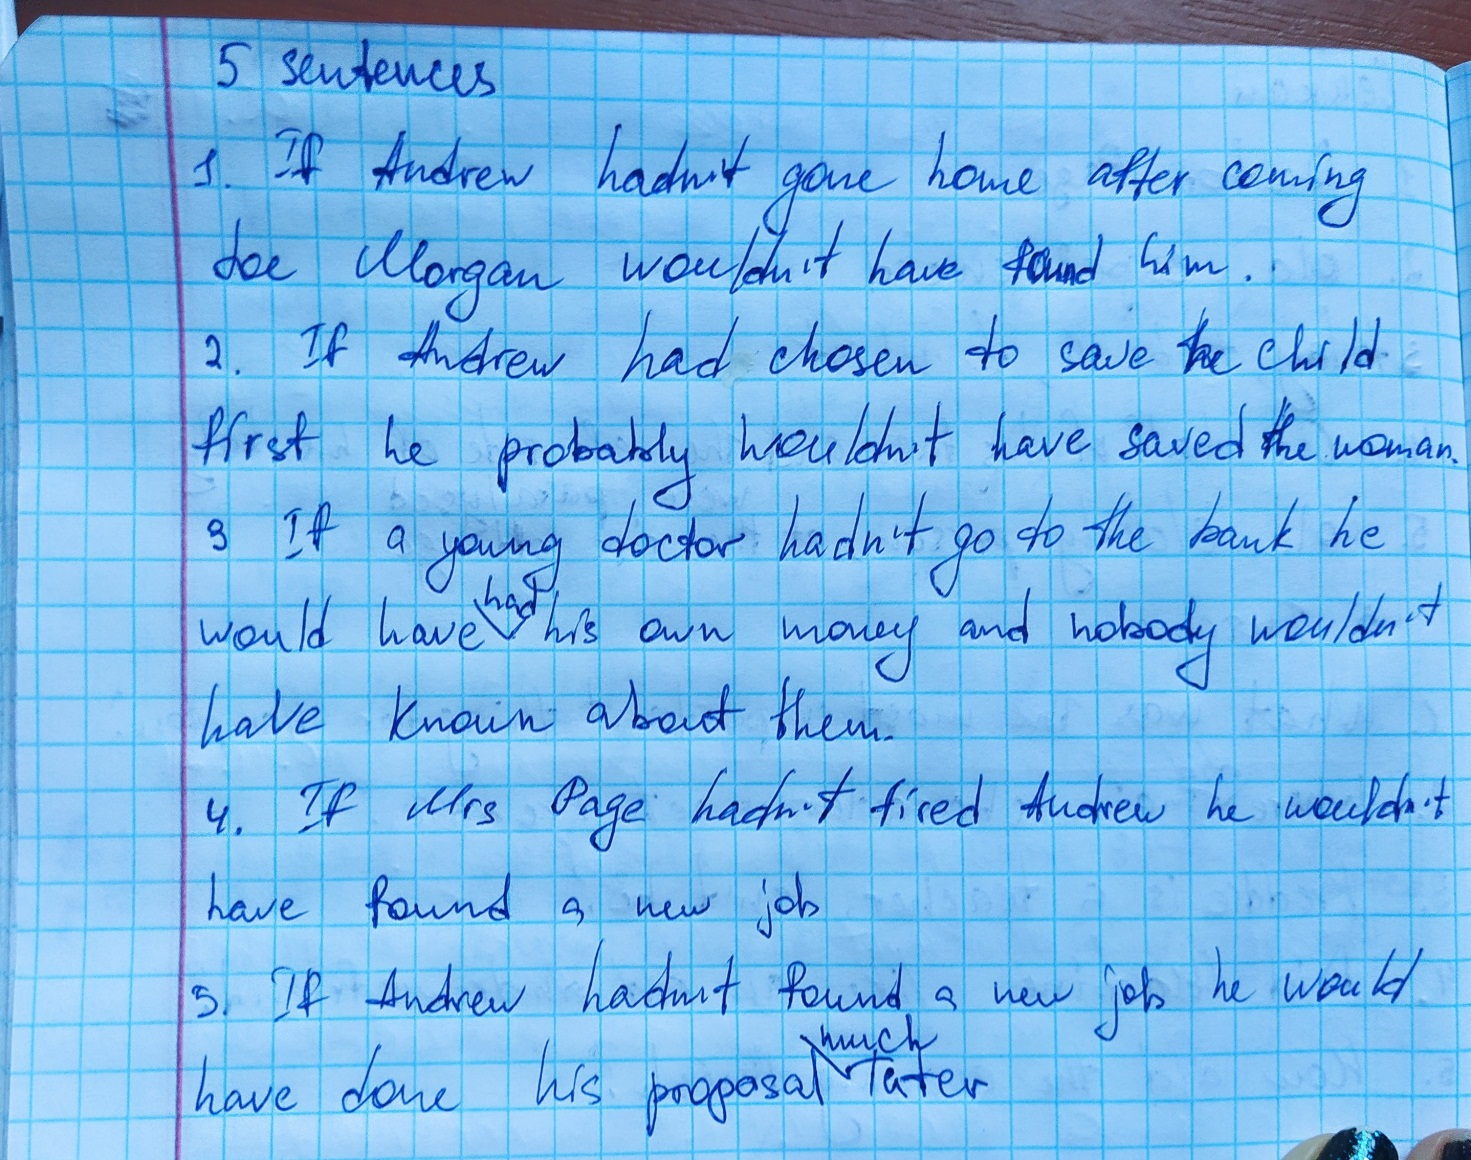 5 sentences
1. If Andrew hadn't gone home after coming
Joe Morgan wouldn't have found him.
2. If Andrew had chosen to save the child
first he probably wouldn't have saved the woman.
3 If a young doctor hadn't go to the bank he
would have had his own money and nobody wouldn't
have known about them.
4. If Mrs Page hadn't fired Andrew he wouldn't
have found a new job
5. If Andrew hadn't found a new job he would
have done his proposal much later